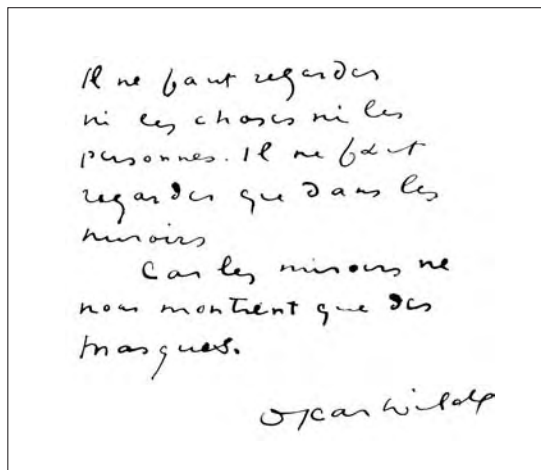 Il ne faut regarder
ni les choses ni les
personnes. Il ne faut
regarder que dans les
miroirs
Car les miroirs ne
nous montrent que des
masques.
Oscar Wilde